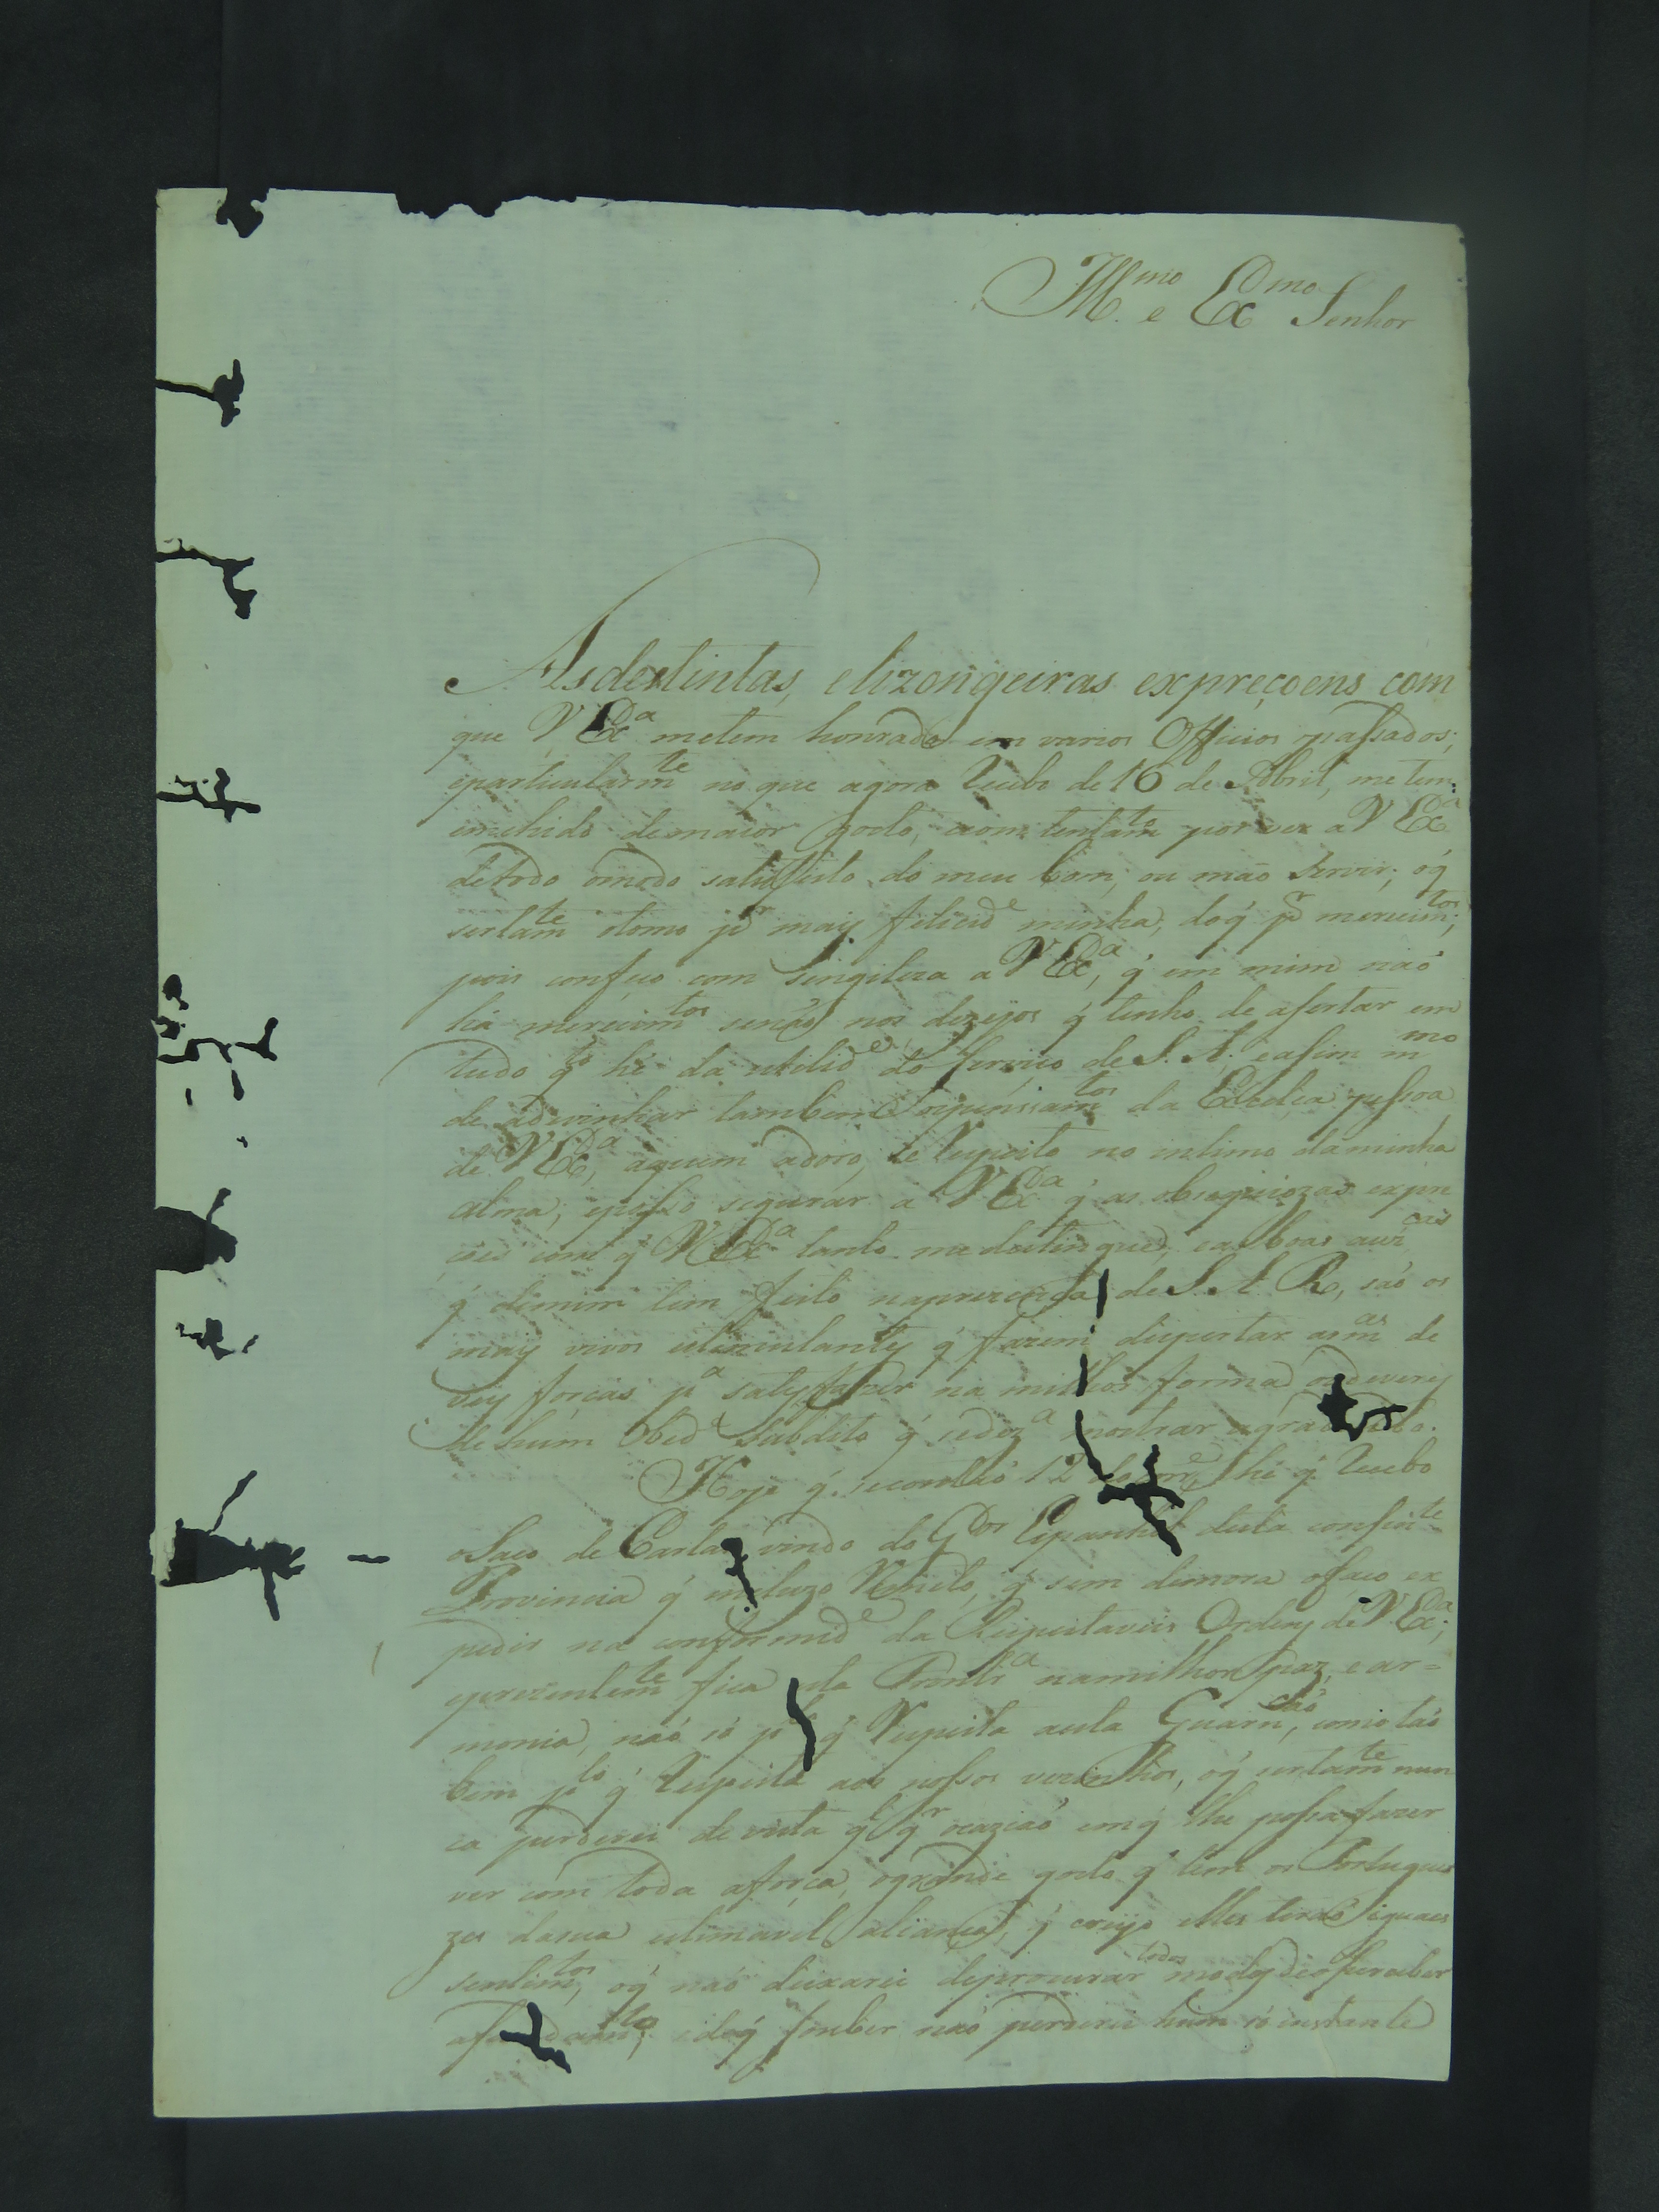 Ill.mo e Ex.mo Senhor
As destintas, e lizongeiras expreçoens com
que V Ex.a metem honrado em varios Officios passados;
eparticularm.te no que agora Recebo de 16 de Abril, me tem
enchido demaior gosto, econtentam.to por ver a V Ex.a
detodo omodo satisfeito do meu bom, ou máo servir; oq̃
sertam.te otomo p.r mais felicid.e minha, doq̃ p.r mereçim.tos;
pois confeço com singileza a V Ex.a, q̃ em mim naõ
ha mereçim.tos senaõ nos dezejos q̃ tenho de asertar em
tudo q.to hé da utilid.e do serviço de S. A. easim m.mo
de advinhar tambem ospensam.tos da Excelca pessoa
de V Ex.a, aquem adoro, e Respeito no intimo daminha
alma; eposso segurar a V Ex.a q̃ as obsequiozas expre
coes com q̃ V Ex.a tanto me destingue, eas boas auz.cas
q̃ demim tem feito naprezença de S. A. R, saõ os
mais vivos estimulantes q̃ fazem dispertar as m.as de
veis forças p.a satisfazer na milhor forma osdeveres
de hum Obed.e subdito q̃ sedez.a mostrar agradecido.
Hoje q̃ secontaõ 12 do corr.e hé q̃ Recebo
oSaco de Cartas vindo do G.dor Espanhol desta confin.te
Provincia q̃ incluzo Remeto, q̃ sem demora ofaço ex
pedir na conformid.e da Respeitaveis Ordens de V. Ex.a;
eprezentem.te fica esta Front.ra namilhor paz, e ar=
monia, naõ só p.lo q̃ Respeita aesta Guarn.çaõ, comotaõ
bem p.lo q̃ Respeita aos nossos vezinhos, oq̃ sertam.te nun
ca perderei de vista q.l q.r ocaziaõ emq̃ lhe possa fazer
ver com toda aforça, ogrande gosto q̃ tem os Portugue
zes dasua estimavel aliança, q̃ creyo elles teraõ iguaes
sentim.tos, oq̃ naõ deixarei deprocurar todos modos deoperceber
 edoq̃ souber naõ perderei hum só instante